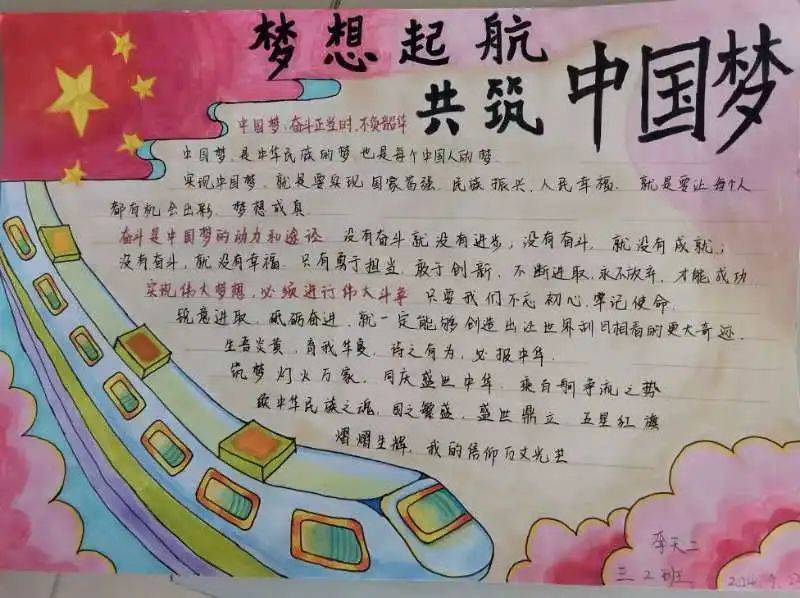 梦想起航
共筑 中国梦
中国梦:奋斗正当时,不负韶华
中国梦,是中华民族的梦,也是每个中国人的梦
实现中国梦,就是要实现国家富强、民族振兴、人民幸福,就是要让每个人
都有机会出彩、梦想成真
奋斗是中国梦的动力和途径 没有奋斗就没有进步;没有奋斗,就没有成就;
没有奋斗,就没有幸福.只有勇于担当,敢于创新,不断进取,永不放弃,才能成功
实现伟大梦想,必须进行伟大斗争 只要我们不忘初心,牢记使命,
锐意进取,砥砺奋进,就一定能够创造出让世界刮目相看的更大奇迹.
生吾炎黄,育我华夏,诗之有为,必报中华.
筑梦灯火万家,同庆盛世中华,乘百舸争流之势
中华民族之魂,国之繁盛,盛世鼎立,五星红旗
熠熠生辉,我的信仰万丈光芒
李天二
三2班